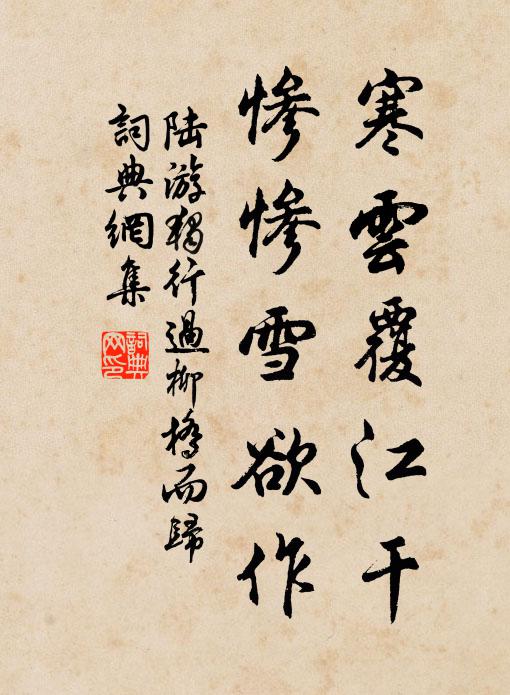 寒雲覆江干
慘慘雪欲作
陆游獨行過柳橋而歸
詞典網集
詞典网印